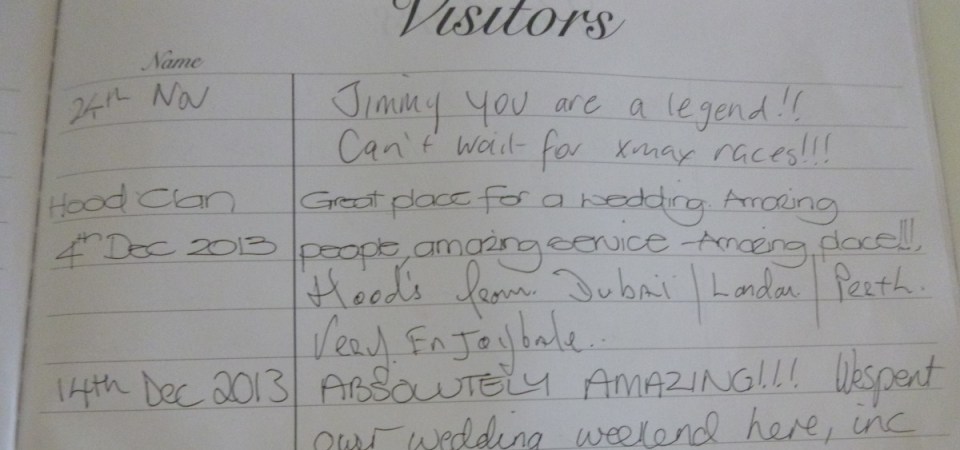 Visitors
Name
24th Nov Jimmy you are a legend!!
Can't wait for xmax races!!!
Hood Clan Great place for a wedding. Amazing
4th Dec 2013 people, amazing service - Amazing place!!!.
Hood's from Dubai / London / Perth.
Very Enjoybale..
14th Dec 2013 ABSOLUTELY AMAZING!!!! We spent
our wedding weekend here, inc